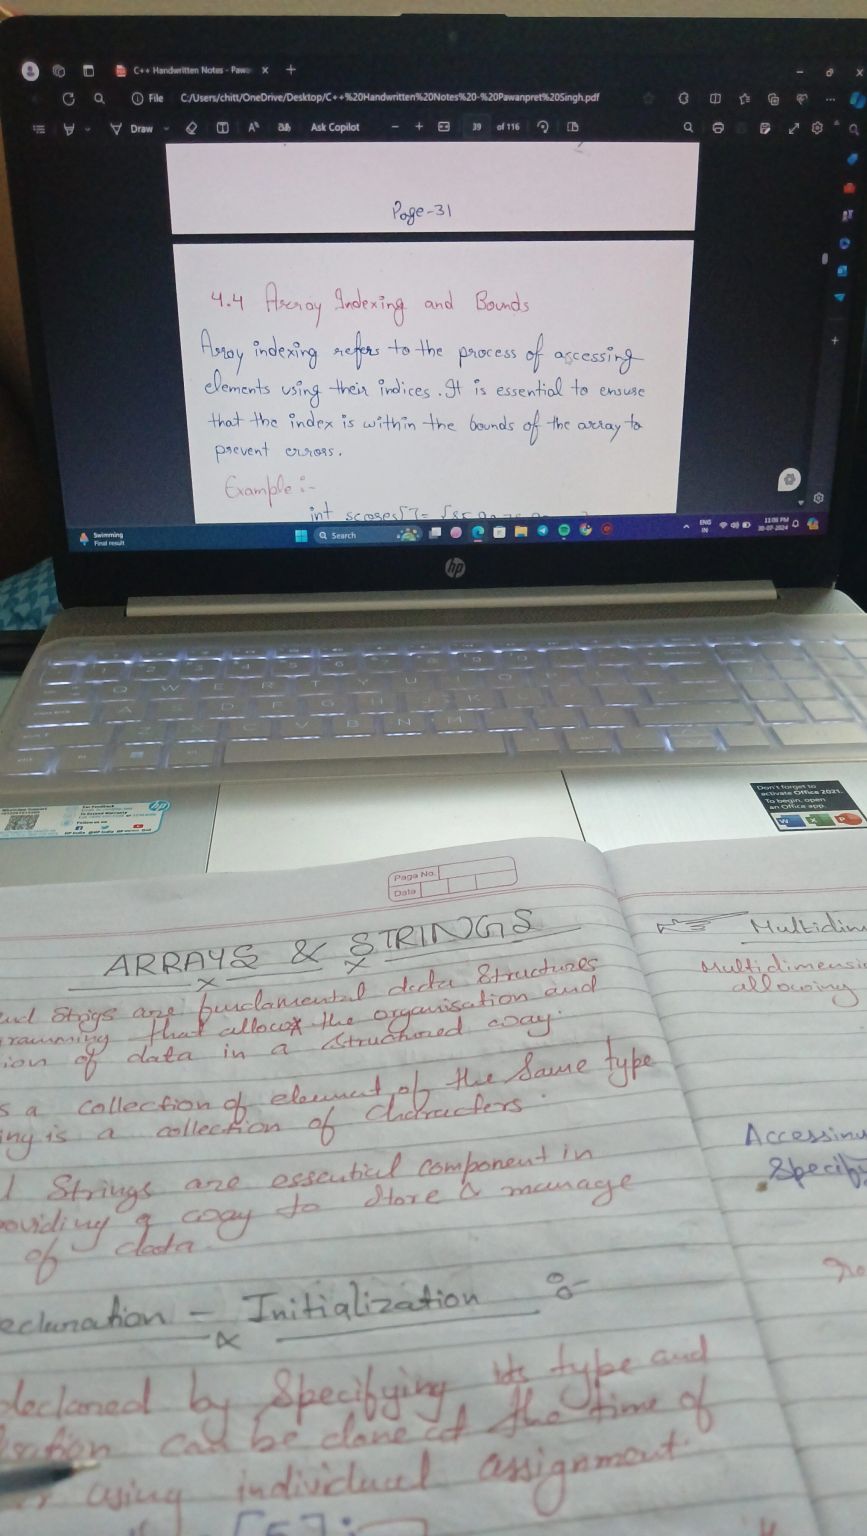 C++ Handwritten Notes - Paw
File C:/Users/chitt/OneDrive/Desktop/C++%20Handwritten%20Notes%20-%20Pawanpret%20Singh.pdf
Draw Ask Copilot 39 of 116
Page-31
4.4 Array Indexing and Bounds
Array indexing refers to the process of accessing
elements using their indices. It is essential to ensure
that the index is within the bounds of the array to
prevent errors.
Example :-
int scores[]= {85,
Swimming
Final result
Search
ENG
IN
11:05 PM
30-07-2024
hp
Don't forget to
activate Office 2021.
To begin, open
an Office app.
Page No.
Date
ARRAYS & STRINGS
and Strigs are fundamental data Structures
ramming that allows the organisation and
ion of data in a structured way.
s a collection of element of the Same type
ing is a collection of Characters.
d Strings are essential component in
oviding a way to Store & manage
of data.
eclaration - Initialization :-
declared by Specifying its type and
lisation can be done at the time of
using individual assignment.
[5];
Multidim
Multidimensio
allowing
Accessing
Specify